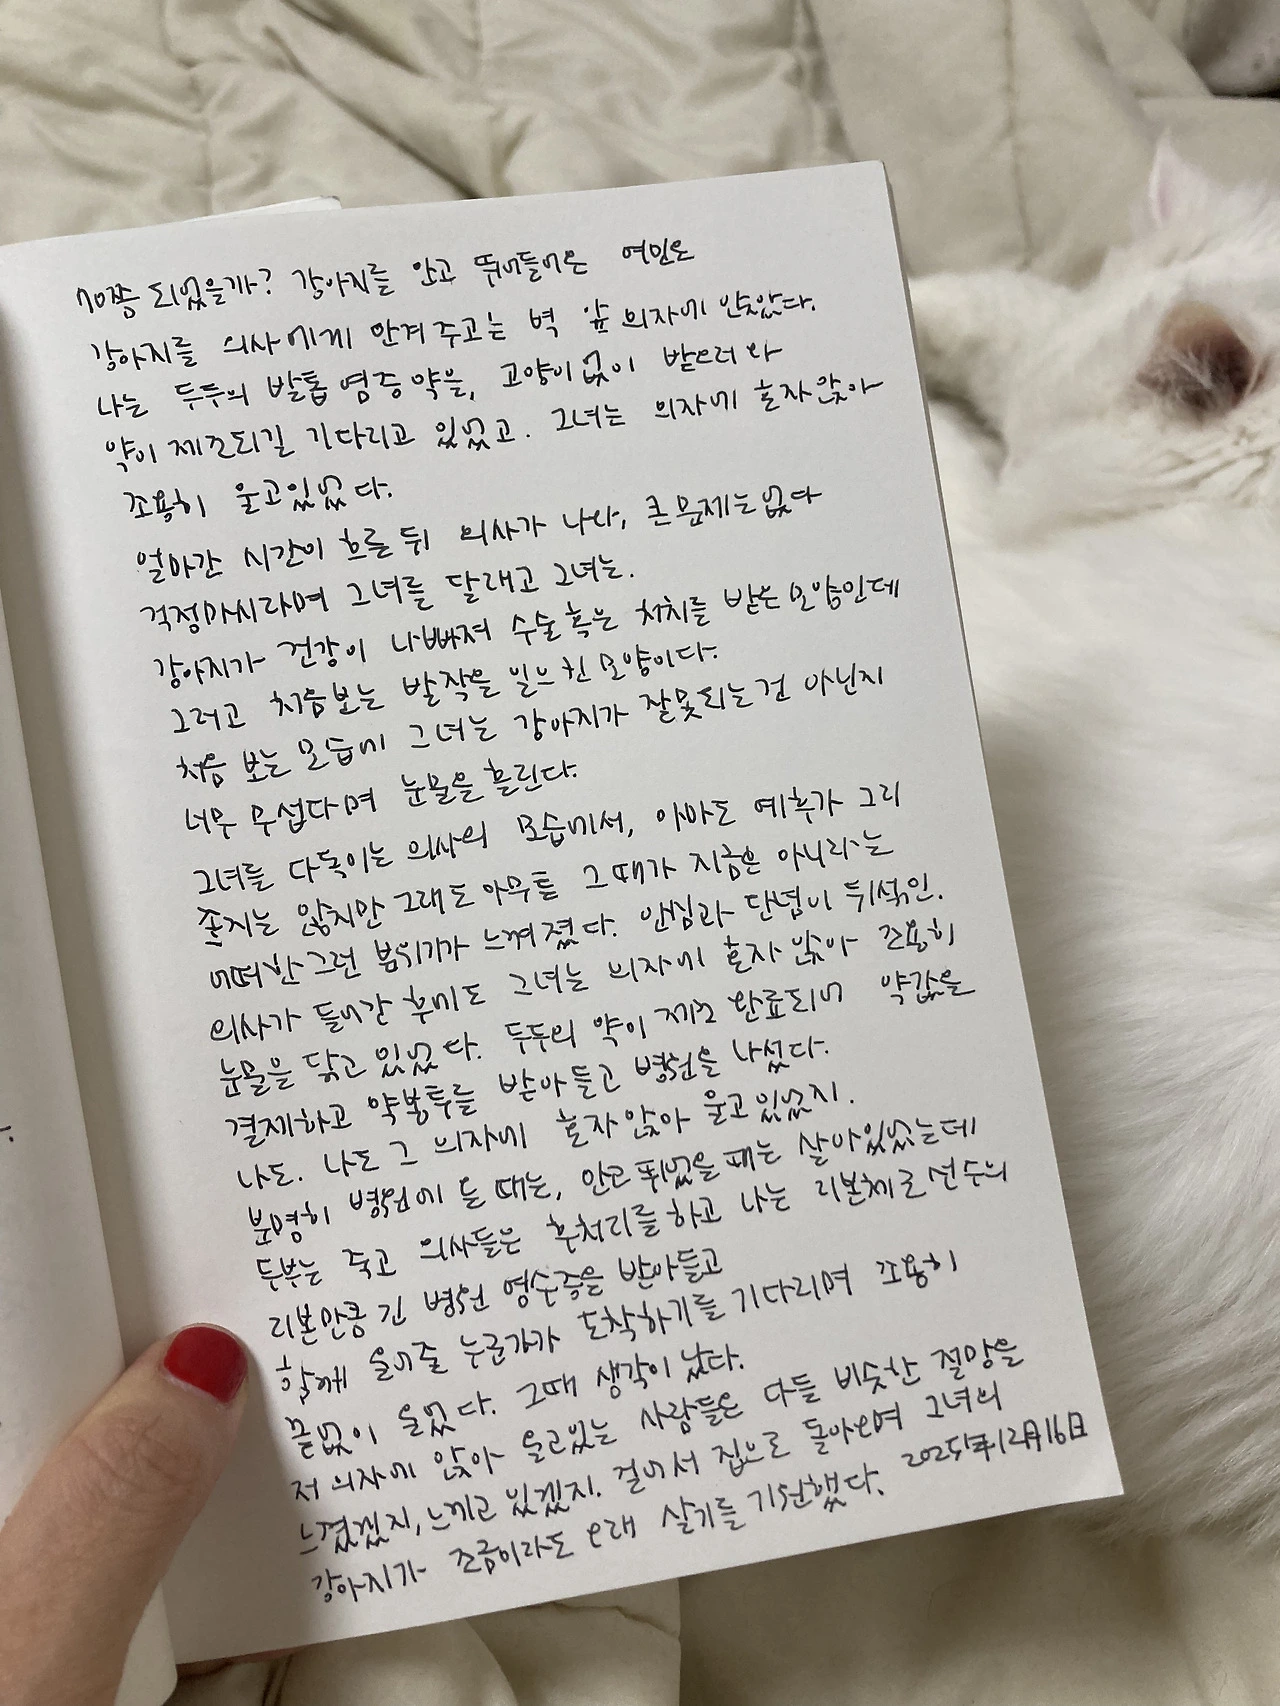 70쯤 되었을까? 강아지를 안고 뛰어들어온 여인은
강아지를 의사에게 안겨주고는 벽 앞 의자에 앉았다.
나는 두두의 발톱 염증약을, 고양이없이 받으러 와
약이 제조되길 기다리고 있었고. 그녀는 의자에 혼자 앉아
조용히 울고있었다.
얼마간 시간이 흐른 뒤 의사가 나와, 큰 문제는 없다
걱정마시라며 그녀를 달래고 그녀는.
강아지가 건강이 나빠져 수술 혹은 처치를 받은 모양인데
그러고 처음보는 발작을 일으킨 모양이다.
처음 보는 모습에 그녀는 강아지가 잘못되는건 아닌지
너무 무섭다며 눈물을 흘린다.
그녀를 다독이는 의사의 모습에서, 아마도 예후가 그리
좋지는 않지만 그래도 아무튼 그 때가 지금은 아니라는
어떠한 그런 분위기가 느껴졌다. 안심과 단념이 뒤섞인.
의사가 들어간 후에도 그녀는 의자에 혼자 앉아 조용히
눈물을 닦고 있었다. 두두의 약이 제조 완료되어 약값을
결제하고 약봉투를 받아들고 병원을 나섰다.
나도. 나도 그 의자에 혼자 앉아 울고있었지.
분명히 병원에 올 때는, 안고 뛰었을 때는 살아있었는데
두부는 죽고 의사들은 후처리를 하고 나는 리본체조선수의
리본만큼 긴 병원 영수증을 받아들고
함께 울어줄 누군가가 도착하기를 기다리며 조용히
끝없이 울었다. 그때 생각이 났다.
저 의자에 앉아 울고있는 사람들은 다들 비슷한 절망을
느꼈겠지, 느끼고 있겠지. 걸어서 집으로 돌아오며 그녀의
강아지가 조금이라도 오래 살기를 기원했다. 2025年12月16日